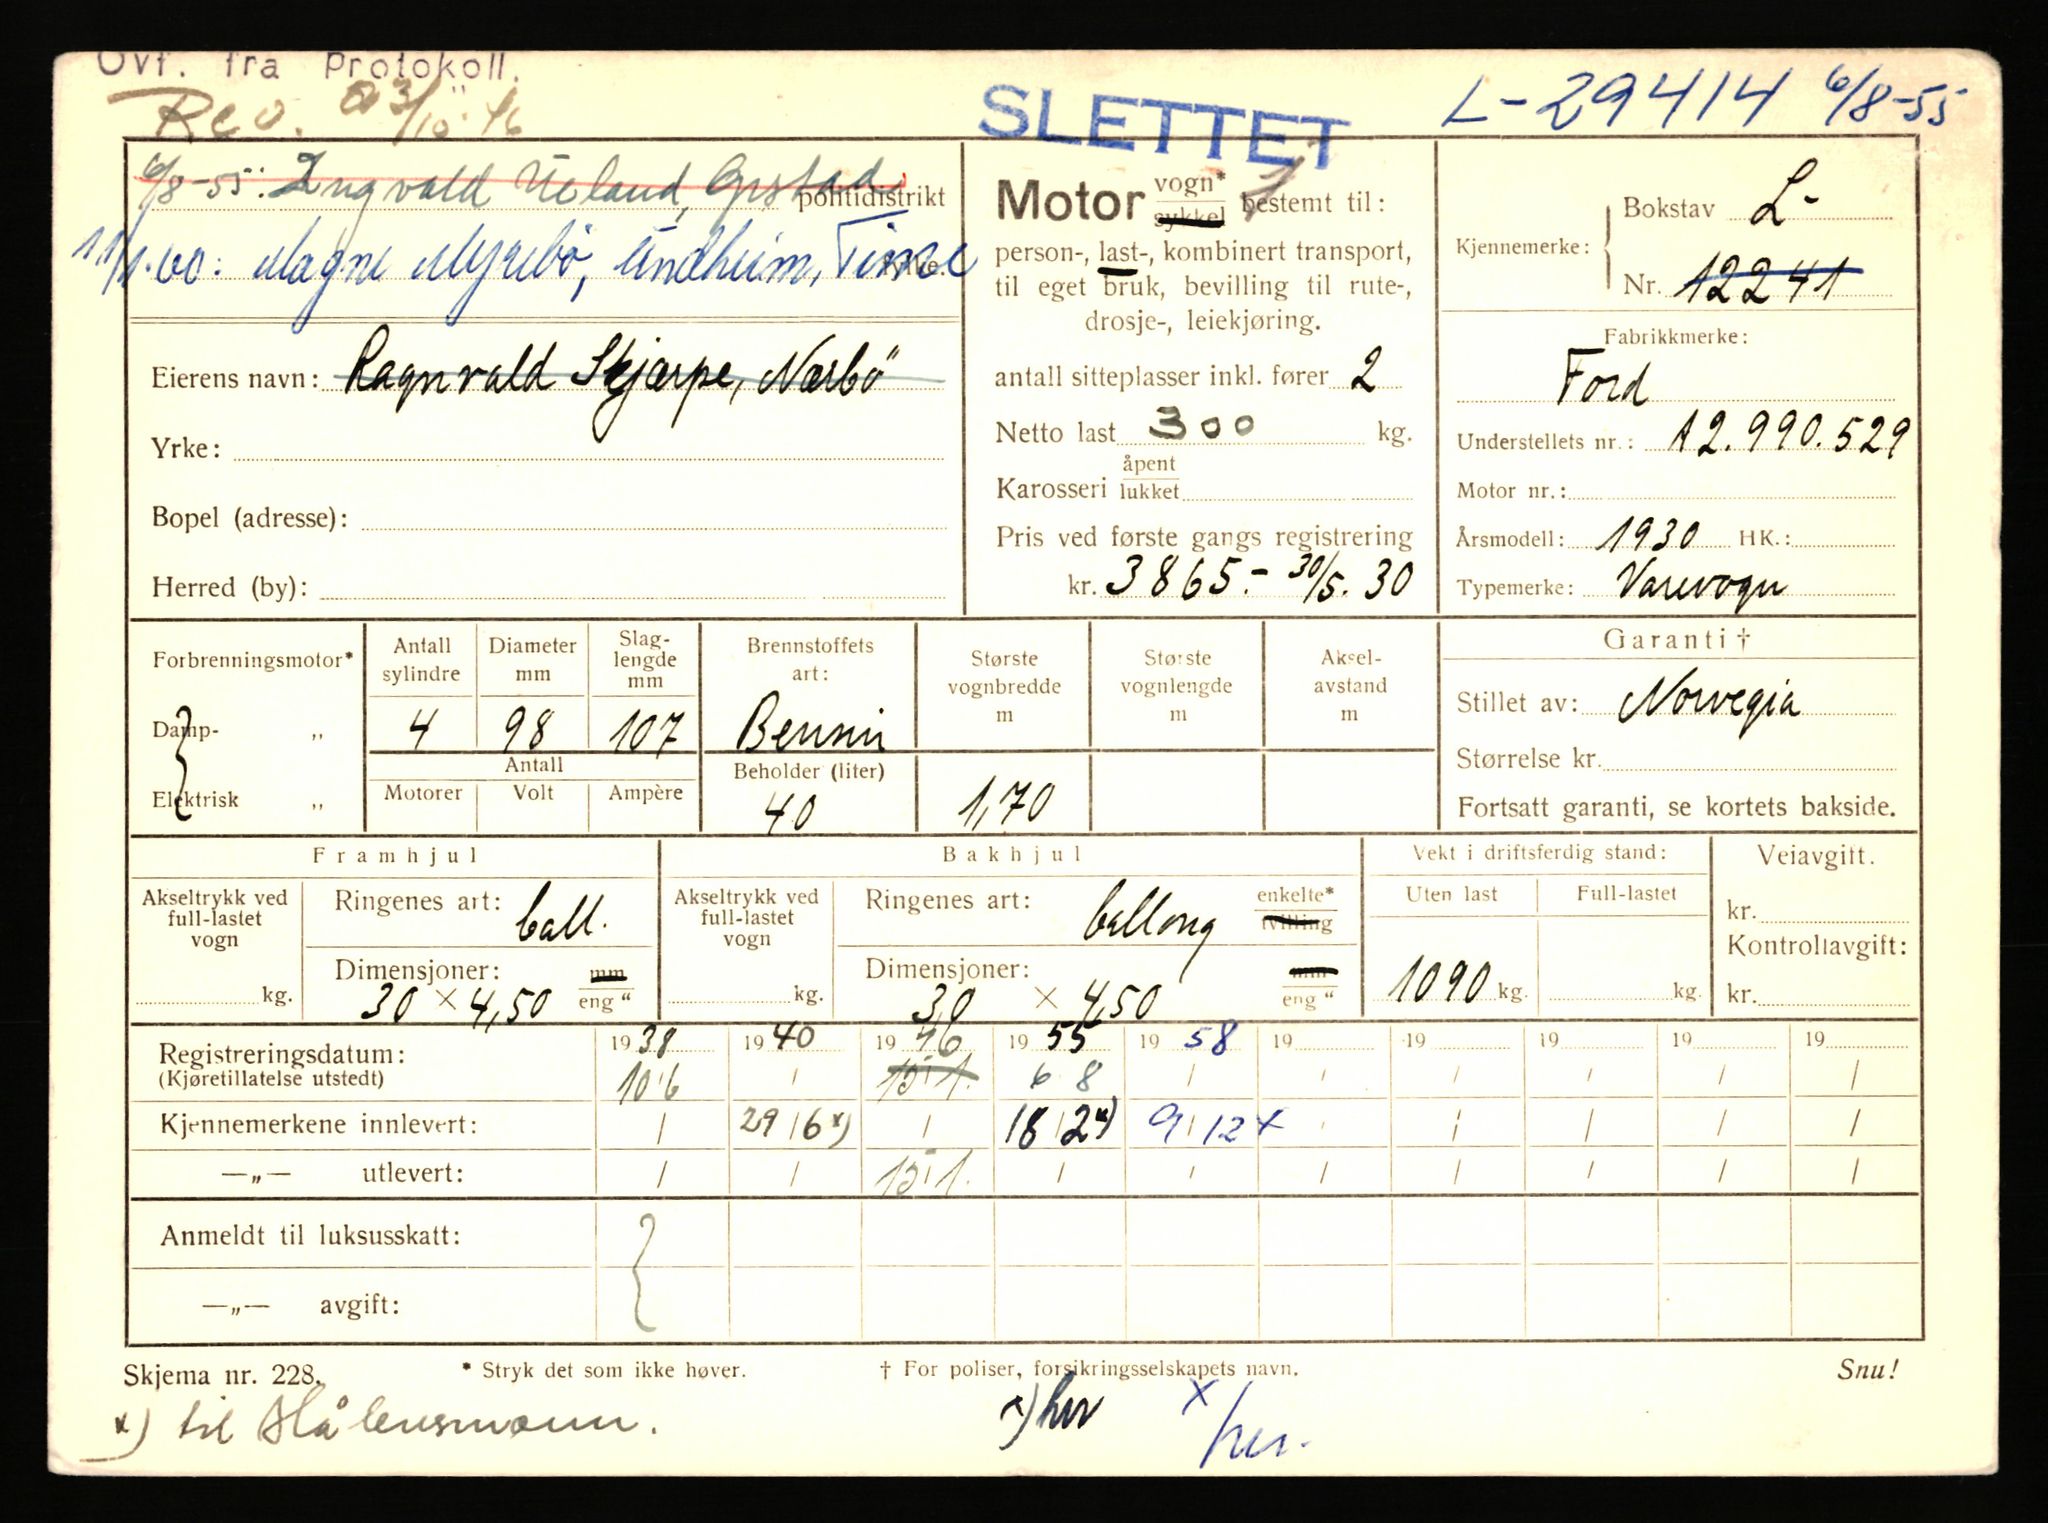 Ovf. fra Protokoll.
Rev. 23/10 46
SLETTET
L-29414 6/8-55
6/8-55: Ingvald Ueland, politidistrikt
11/1.60: Magne Myrebø, Undheim, Time
Motor vogn* sykkel bestemt til:
person-, last-, kombinert transport,
til eget bruk, bevilling til rute-,
drosje-, leiekjøring.
Kjennemerke: Bokstav L-
Nr. 12241
Eierens navn: Ragnvald Skjærpe, Nærbö
Yrke:
Bopel (adresse):
Herred (by):
antall sitteplasser inkl. fører 2
Netto last 300 kg.
Karosseri åpent lukket
Pris ved første gangs registrering
kr. 3865.- 30/5. 30
Fabrikkmerke:
Ford
Understellets nr.: A2.990.529
Motor nr.:
Årsmodell: 1930 HK.:
Typemerke: Varevogn
Forbrenningsmotor*
Damp- „
Elektrisk „
Antall sylindre
Diameter mm
Slag-lengde mm
4 98 107
Antall
Motorer Volt Ampère
Brennstoffets art:
Bensin
Beholder (liter)
40
Største vognbredde m
1,70
Største vognlengde m
Aksel-avstand m
Garanti †
Stillet av: Norvegia
Størrelse kr.
Fortsatt garanti, se kortets bakside.
Framhjul
Akseltrykk ved full-lastet vogn
kg.
Ringenes art: ball.
Dimensjoner: mm
30 × 4,50 eng "
Bakhjul
Akseltrykk ved full-lastet vogn
kg.
Ringenes art: ballong enkelte* tvilling
Dimensjoner: mm
30 × 4,50 eng "
Vekt i driftsferdig stand:
Uten last Full-lastet
1090 kg. kg.
Veiavgitt.
kr.
Kontrollavgift:
kr.
Registreringsdatum: 1938 1940 1946 1955 1958 19 19 19 19 19
(Kjøretillatelse utstedt) 10/6 / 15/1. 6 8 / / / / / /
Kjennemerkene innlevert: / 29/6 x) / 18/2 x) 9/12 x / / / / /
—„— utlevert: / / 15/1. / / / / / / /
Anmeldt til luksusskatt:
—„— avgift:
Skjema nr. 228.
* Stryk det som ikke høver.
† For poliser, forsikringsselskapets navn.
Snu!
x) til Hå lensmann.
x) her
x/ her.